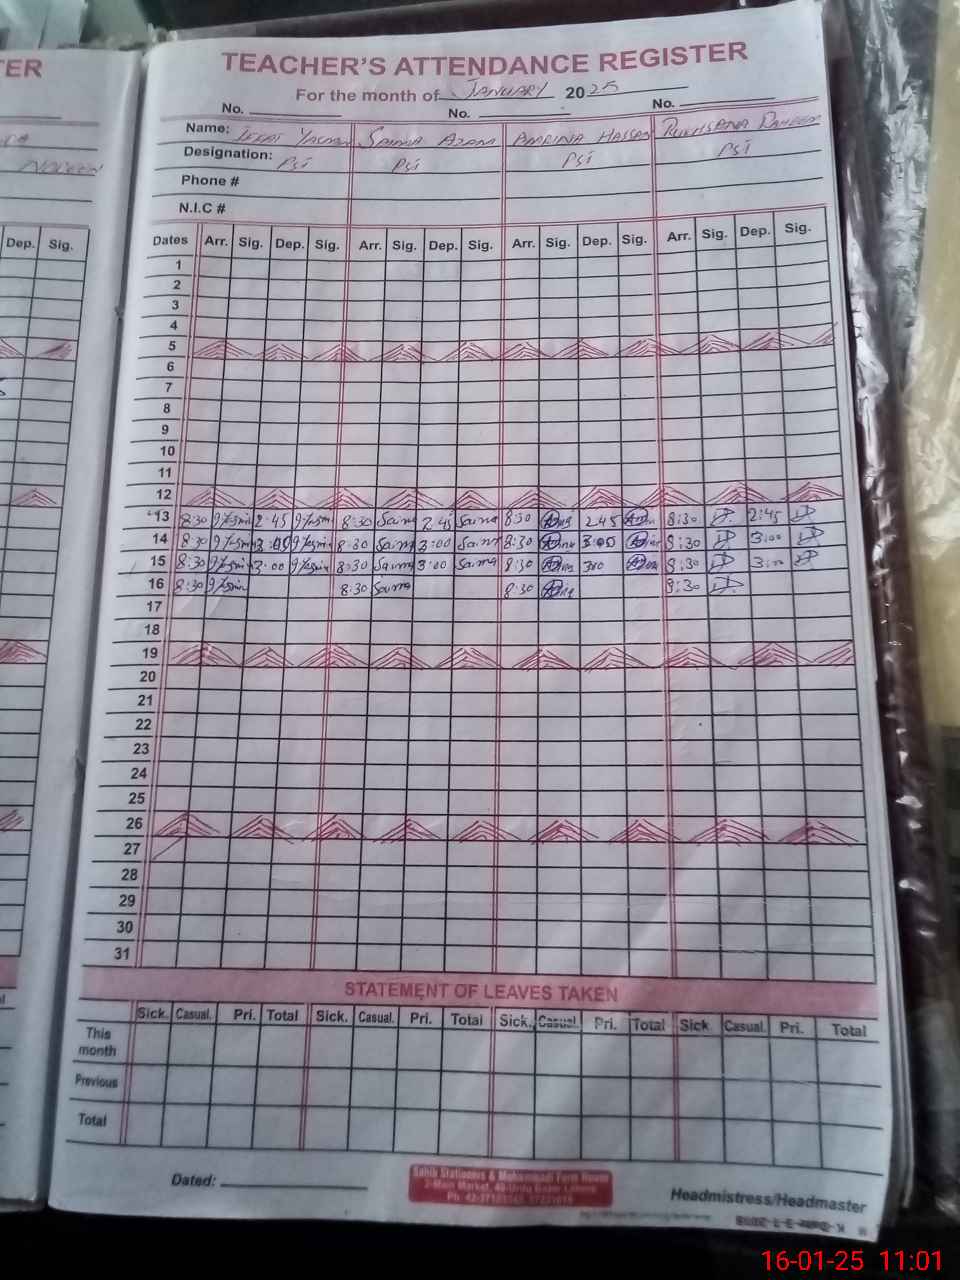 TER
TEACHER'S ATTENDANCE REGISTER
For the month of JANUARY 2025
No. No. No.
Name: Yasmin Saima Azam Amrina Hassan Rukhsana Raheem
Designation: PSI PSI PSI PSI
Phone #
N.I.C #
Dep. Sig.
Dates Arr. Sig. Dep. Sig. Arr. Sig. Dep. Sig. Arr. Sig. Dep. Sig. Arr. Sig. Dep. Sig.
1
2
3
4
5
6
7
8
9
10
11
12
13 8:30 2:45 8:30 Saima 2:45 Saima 8:30 2:45 8:30 2:45
14 8:30 3:00 8:30 Saima 3:00 Saima 8:30 3:00 8:30 3:00
15 8:30 3:00 8:30 Saima 3:00 Saima 8:30 300 8:30 3:00
16 8:30 8:30 Saima 8:30 8:30
17
18
19
20
21
22
23
24
25
26
27
28
29
30
31
STATEMENT OF LEAVES TAKEN
Sick. Casual. Pri. Total Sick. Casual. Pri. Total Sick. Casual. Pri. Total Sick. Casual. Pri. Total
This month
Previous
Total
Dated:
Sahib Stationers & Mohammadi Form House
2-Main Market, 40-Urdu Bazar Lahore
Headmistress/Headmaster
16-01-25 11:01